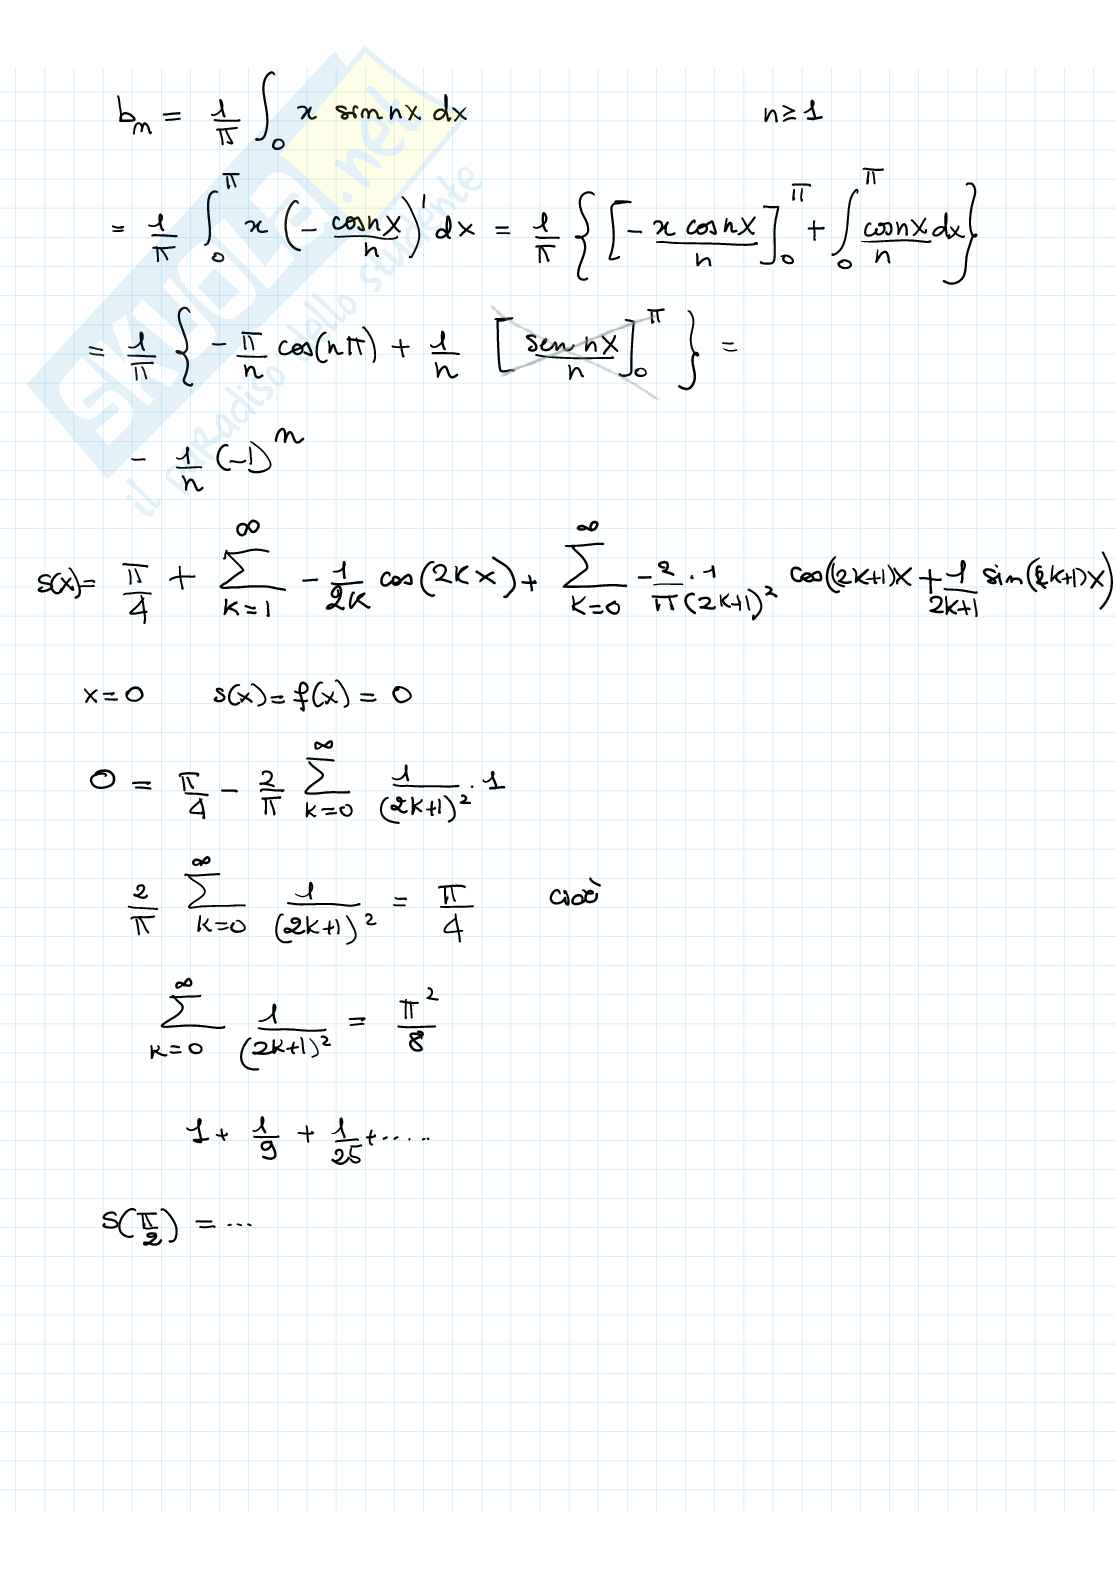 bₙ = 1/π ∫₀ x sin nx dx n ≥ 1
= 1/π ∫₀^π x (- cosnx/n)' dx = 1/π { [- x cosnx/n]₀^π + ∫₀^π cosnx/n dx }
= 1/π { - π/n cos(nπ) + 1/n [sen nx/n]₀^π } =
- 1/n (-1)ⁿ
S(x) = π/4 + ∑_{k=1}^∞ - 1/2k cos(2kx) + ∑_{k=0}^∞ - 2/π · 1/(2k+1)² cos((2k+1)x + 1/2k+1 sin(2k+1)x)
x=0 s(x) = f(x) = 0
0 = π/4 - 2/π ∑_{k=0}^∞ 1/(2k+1)² · 1
2/π ∑_{k=0}^∞ 1/(2k+1)² = π/4 cioè
∑_{k=0}^∞ 1/(2k+1)² = π²/8
1 + 1/9 + 1/25 + .....
S(π/2) = ...
SKUOLA.net
il paradiso dello studente